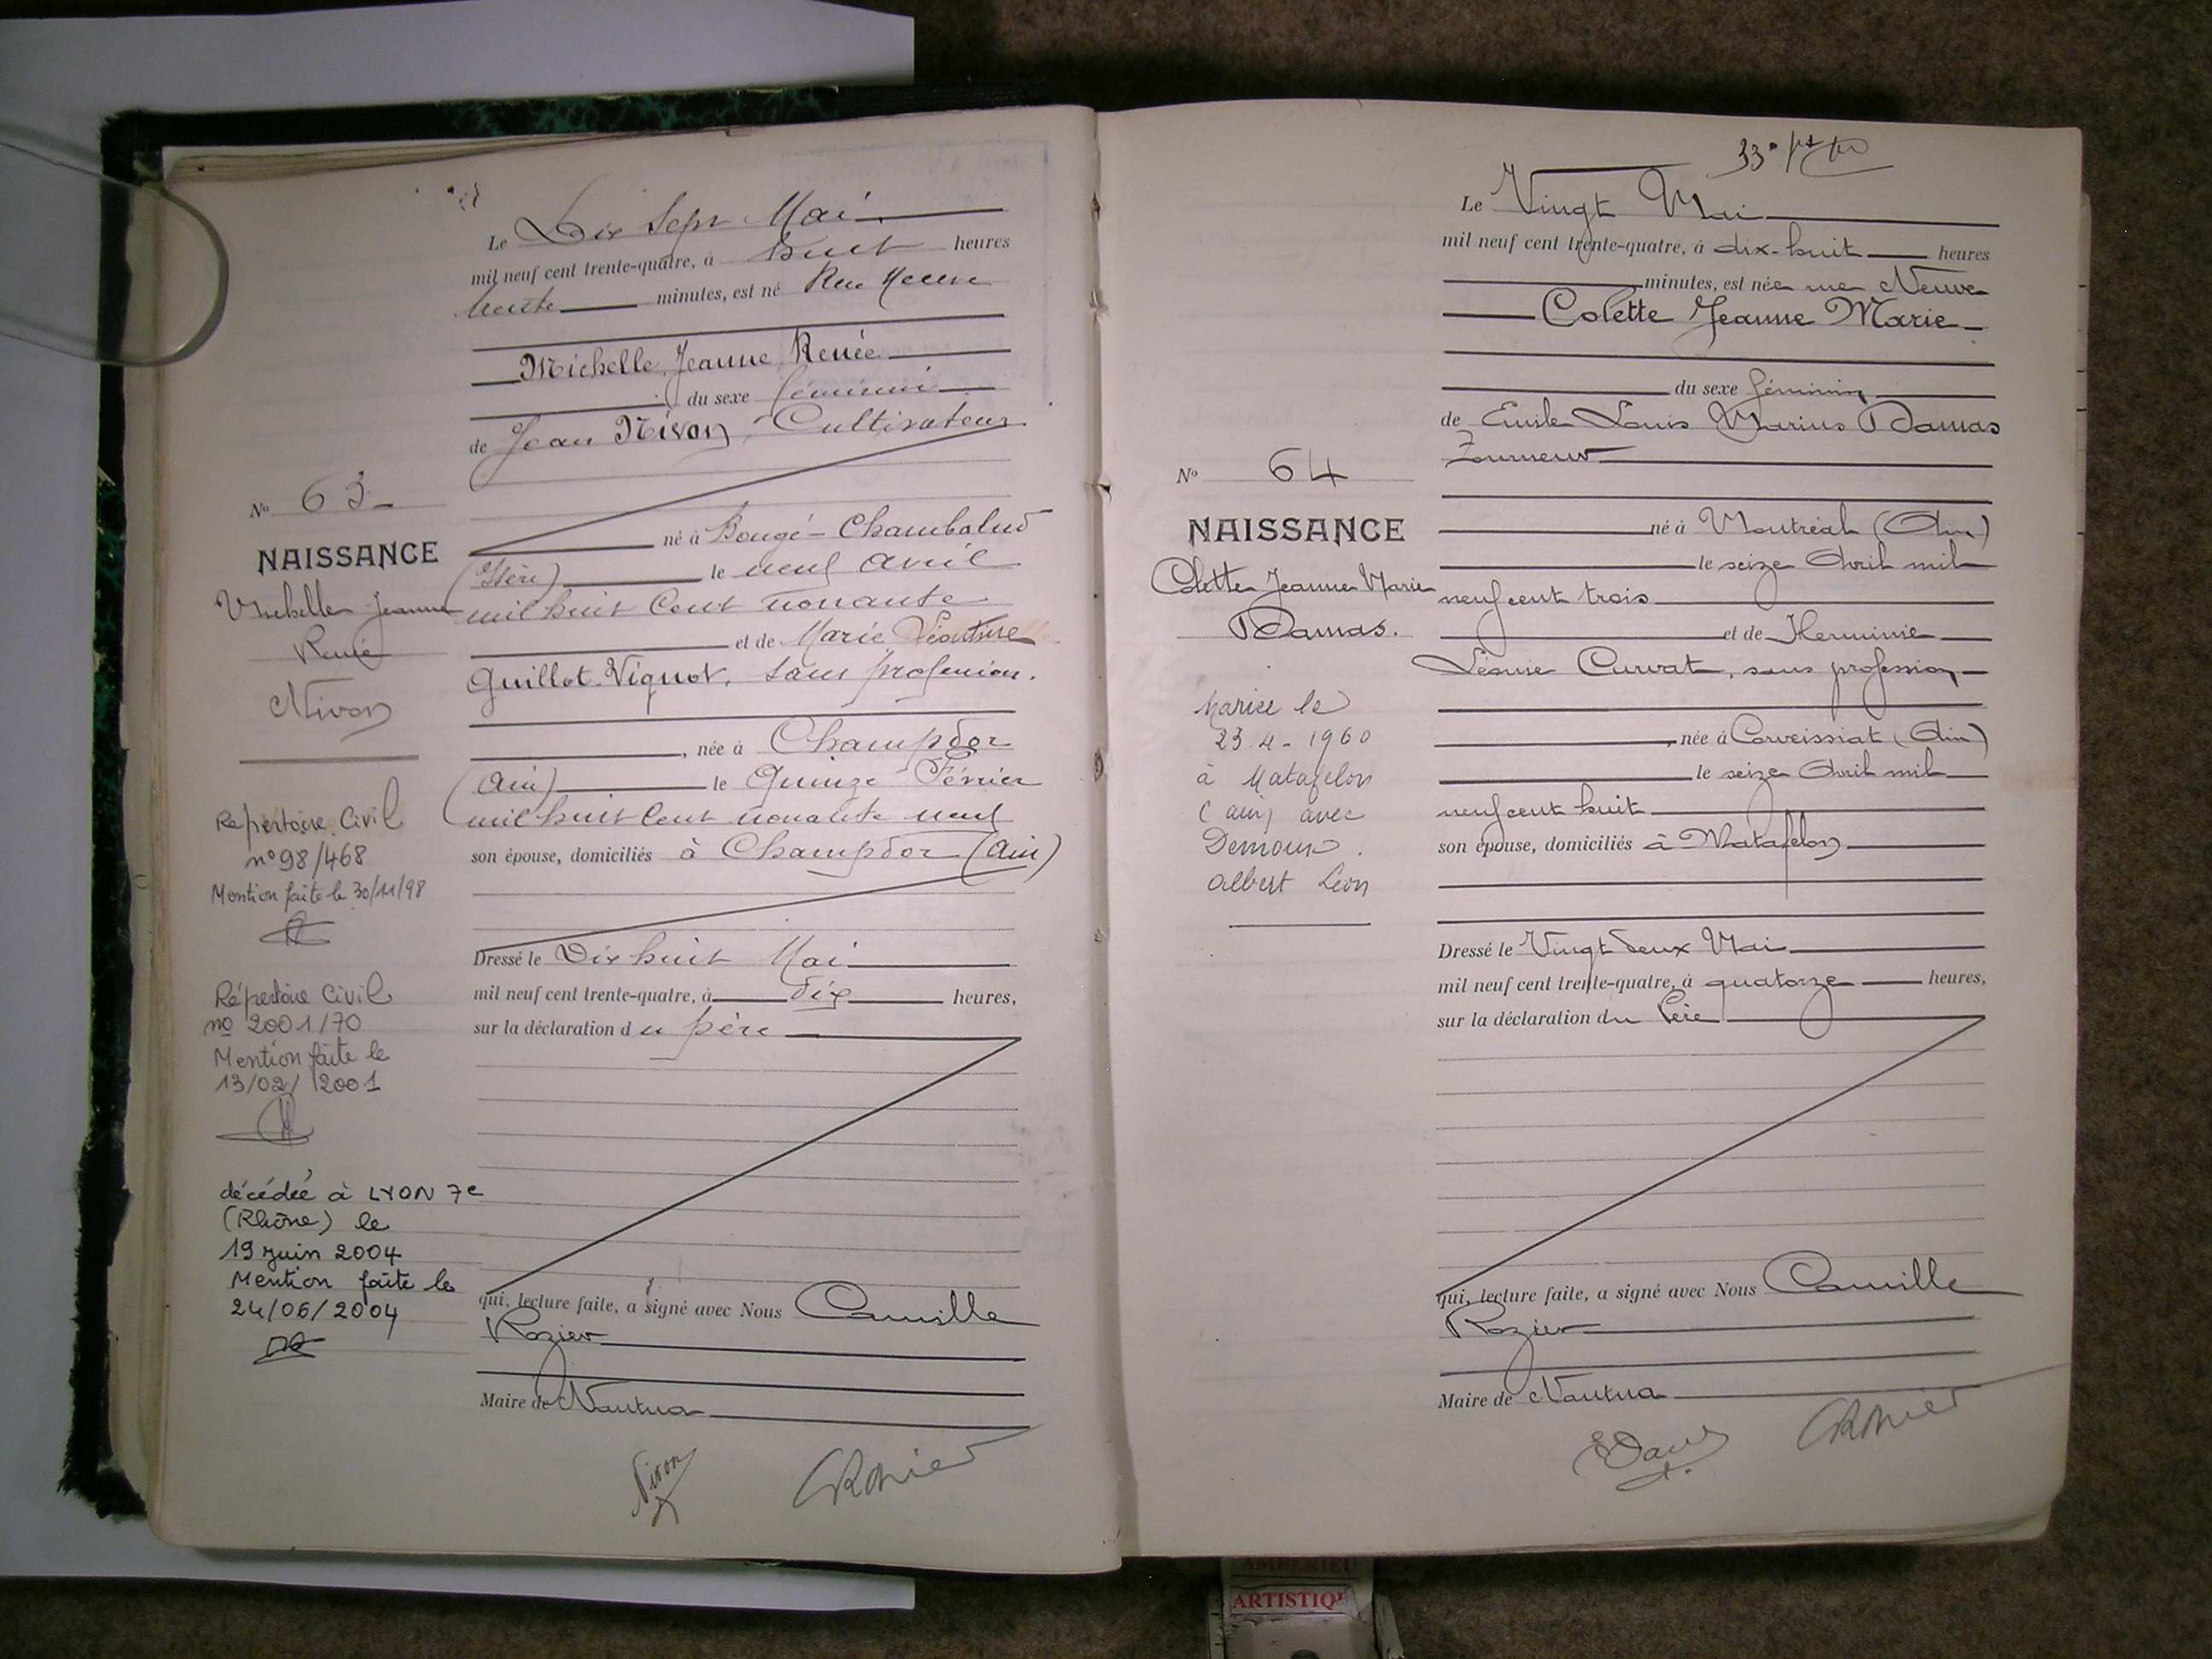 Le Dix Sept Mai
mil neuf cent trente-quatre, à huit heures
trente minutes, est né Rue Neuve
Michelle, Jeanne, Renée
du sexe féminin
de Jean Nivon, Cultivateur
né à Bougé-Chambalud
(Isère) le neuf avril
mil huit cent nonante
et de Marie Léontine
Guillot-Viquot, sans profession.
, née à Champdor
(Ain) le Quinze Février
mil huit cent nonante neuf
son épouse, domiciliés à Champdor (Ain)
Dressé le Dix huit Mai
mil neuf cent trente-quatre, à dix heures,
sur la déclaration du père
qui, lecture faite, a signé avec Nous Camille
Rozier
Maire de Nantua
Nivon
CRozier
No 63
NAISSANCE
Michelle Jeanne
Renée
Nivon
Répertoire Civil
n° 98/468
Mention faite le 30/11/98
Répertoire Civil
no 2001/70
Mention faite le
13/02/2001
décédée à LYON 7e
(Rhône) le
19 juin 2004
Mention faite le
24/06/2004
Le Vingt Mai
mil neuf cent trente-quatre, à dix-huit heures
minutes, est née rue Neuve
Colette Jeanne Marie
du sexe féminin
de Emile Louis Marius Damas
Tourneur
né à Montréal (Ain)
le seize Avril mil
neuf cent trois
et de Herminie
Lésnie Curvat, sans profession
, née à Corveissiat (Ain)
le seize Avril mil
neuf cent huit
son épouse, domiciliés à Matafelon
Dressé le Vingt deux Mai
mil neuf cent trente-quatre, à quatorze heures,
sur la déclaration du Père
qui, lecture faite, a signé avec Nous Camille
Rozier
Maire de Nantua
EDamas
CRozier
No 64
NAISSANCE
Colette Jeanne Marie
Damas.
Mariée le
23-4-1960
à Matafelon
(ain) avec
albert Léon
ARTISTIQ